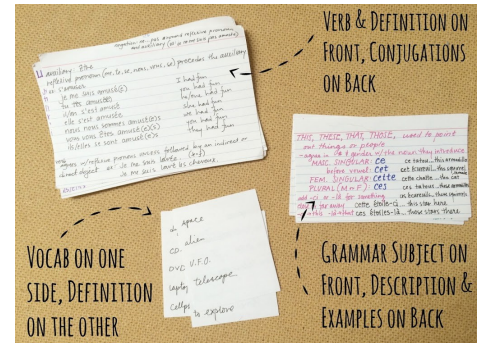 VERB & DEFINITION ON
FRONT, CONJUGATIONS
ON BACK
negation: ne... pas around reflexive pronoun
and auxiliary
auxiliary: être
reflexive pronoun (me, te, se, nous, vous, se) precedes the auxiliary
s'amuser
je me suis amusé(e) I had fun
tu t'es amusé(e) you had fun
il/on s'est amusé he/one had fun
elle s'est amusée she had fun
nous nous sommes amusé(e)s we had fun
vous vous êtes amusé(e)(s) you had fun
ils/elles se sont amusé(e)s they had fun
agrees w/reflexive pronoun unless followed by an indirect or
direct object
Je me suis lavée
Je me suis lavé les cheveux.
THIS, THESE, THAT, THOSE, used to point
out things or people
-agree in # & gender w/the noun they introduce
MASC. SINGULAR: ce ce tatou...this armadillo
before vowel: cet cet écureuil...this squirrel
FEM. SINGULAR: cette cette chatte...this cat
PLURAL (M or F): ces ces tatous...these armadillos
ces écureuils...these squirrels
add -ci or -là for something
far away cette étoile-ci...this star here
ces étoiles-là...those stars there
space
alien
U.F.O.
telescope
to explore
CD
DVD
laptop
VOCAB ON ONE
SIDE, DEFINITION
ON THE OTHER
GRAMMAR SUBJECT ON
FRONT, DESCRIPTION &
EXAMPLES ON BACK